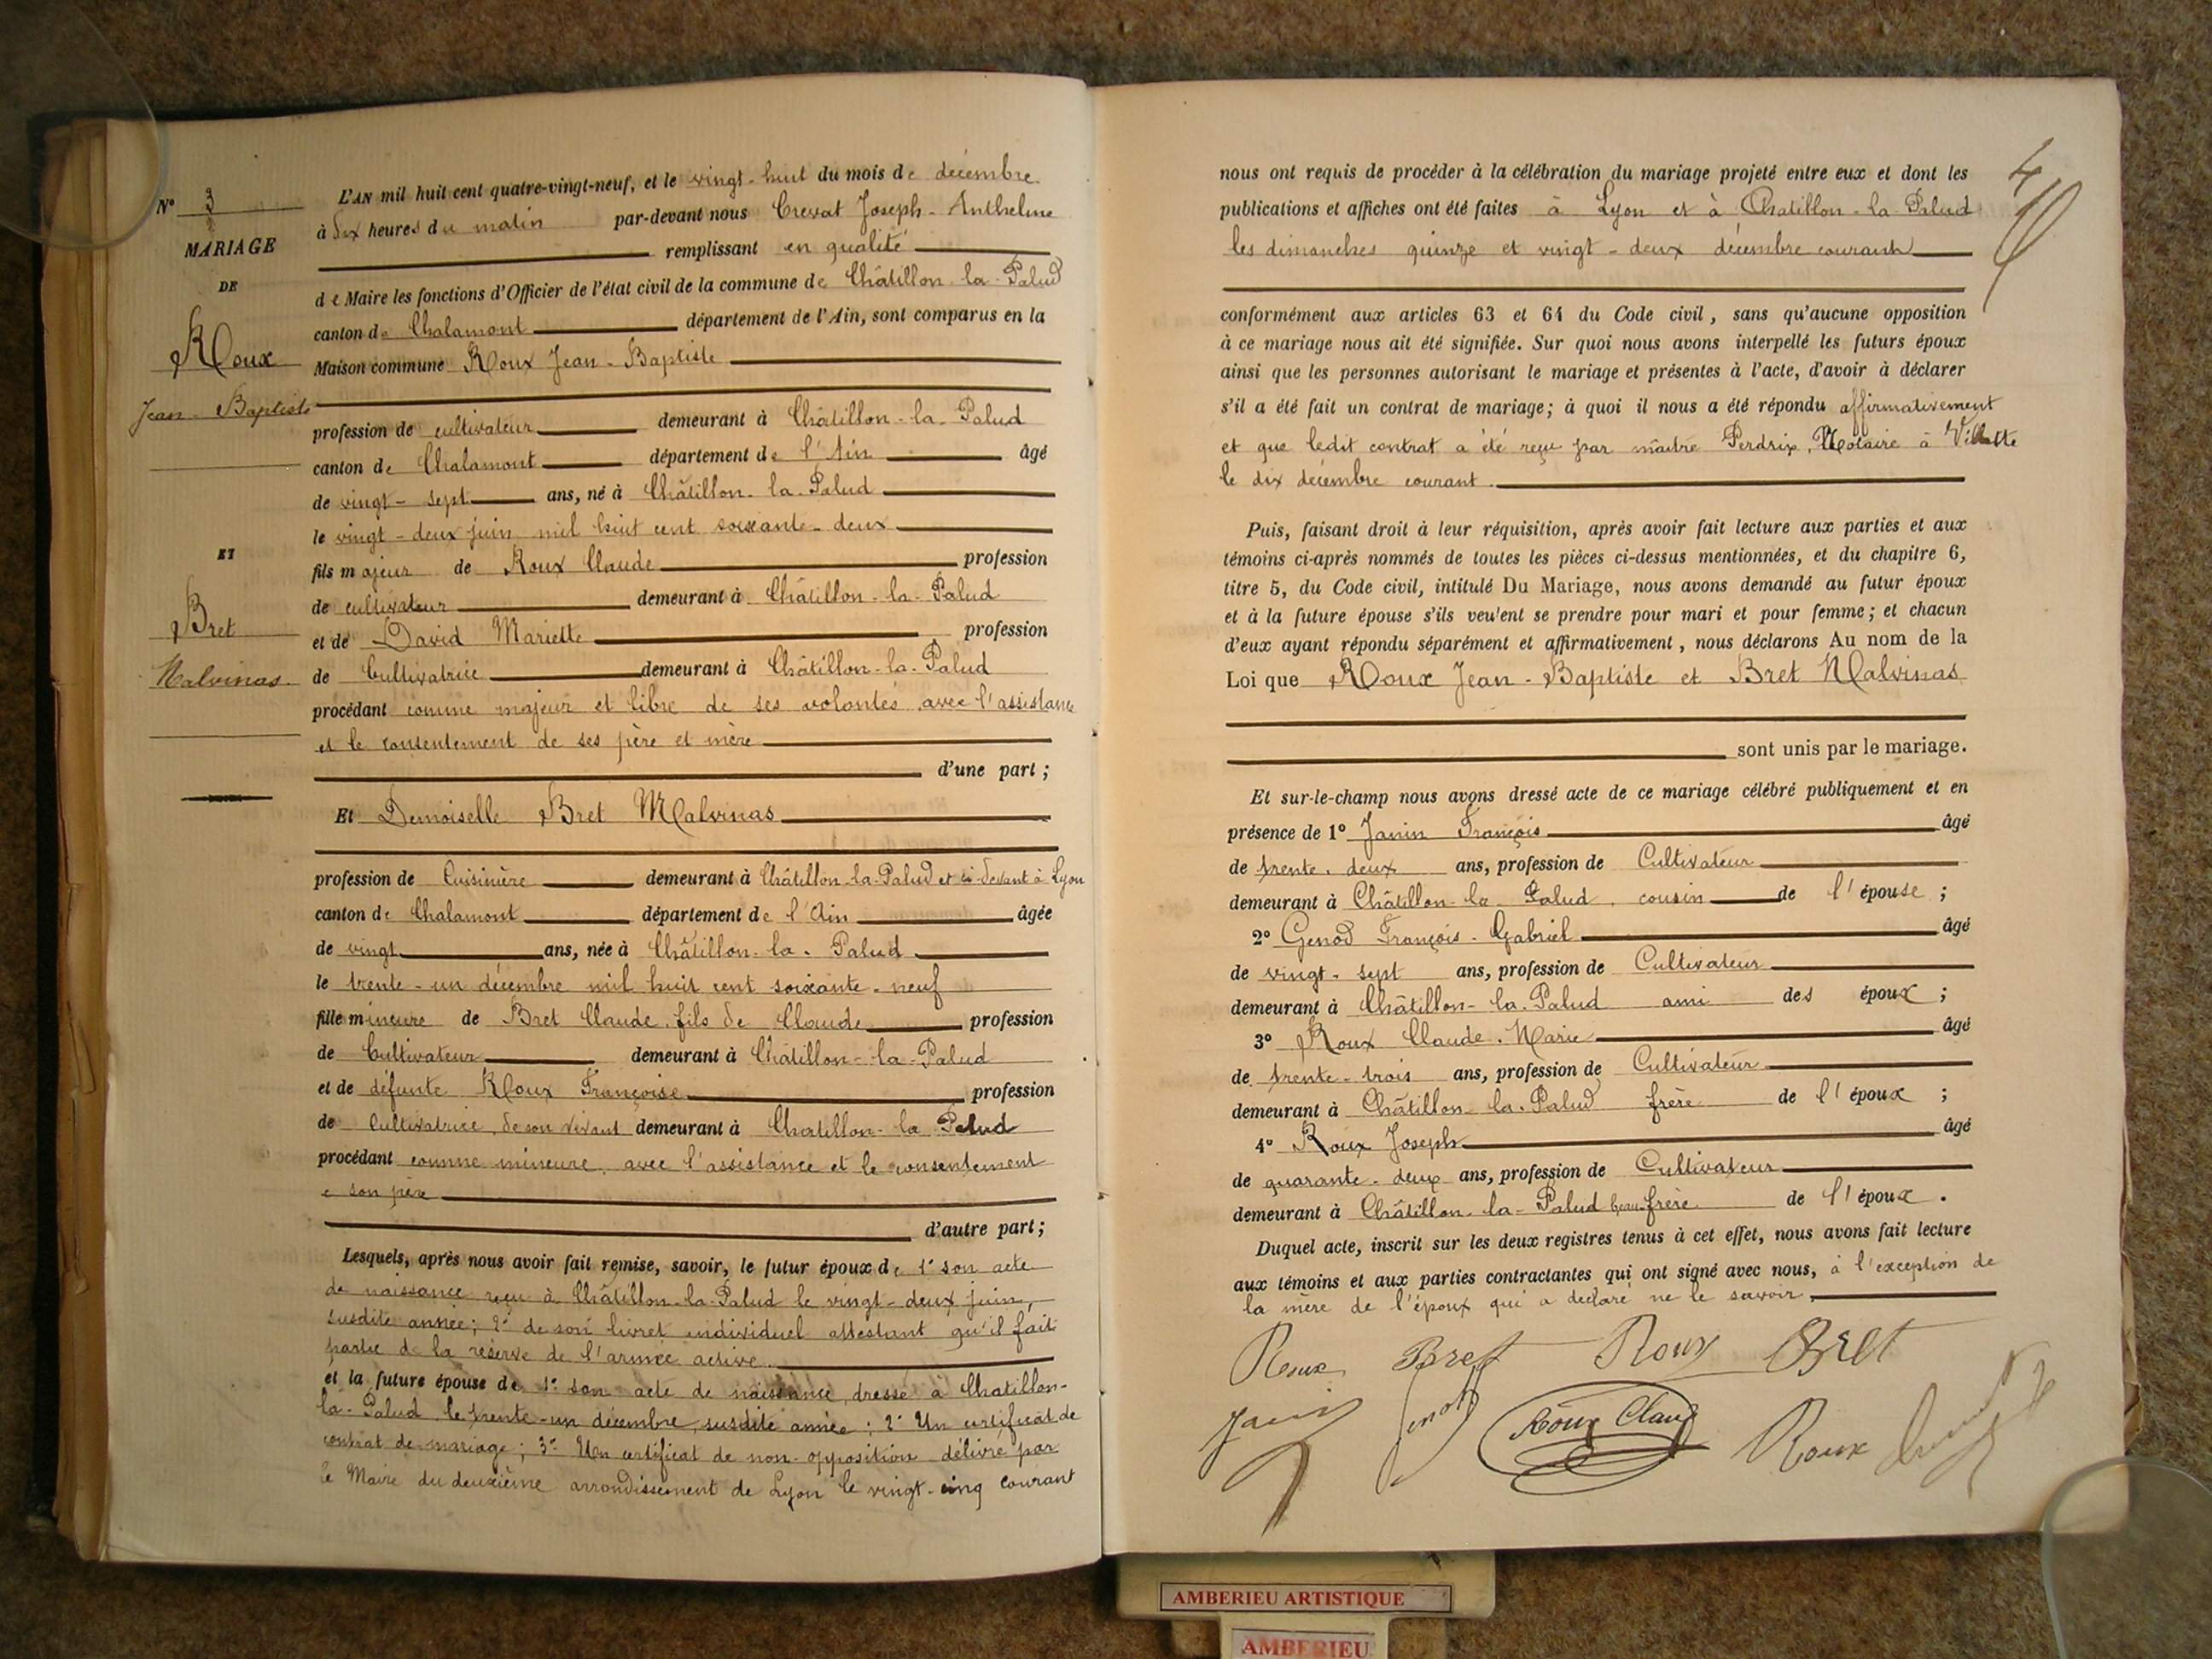 N° 3
MARIAGE
DE
Roux
Jean-Baptiste
ET
Bret
Malvinas.
L'AN mil huit cent quatre-vingt-neuf, et le vingt-huit du mois de décembre
à dix heures du matin par-devant nous Crevat Joseph-Anthelme
remplissant en qualité
de Maire les fonctions d'Officier de l'état civil de la commune de Châtillon-la-Palud
canton de Chalamont département de l'Ain, sont comparus en la
Maison commune Roux Jean-Baptiste
profession de cultivateur demeurant à Châtillon-la-Palud
canton de Chalamont département de l'Ain âgé
de vingt-sept ans, né à Châtillon-la-Palud
le vingt-deux juin mil huit cent soixante-deux
fils majeur de Roux Claude profession
de cultivateur demeurant à Châtillon-la-Palud
et de David Mariette profession
de Cultivatrice demeurant à Châtillon-la-Palud
procédant comme majeur et libre de ses volontés avec l'assistance
et le consentement de ses père et mère
d'une part ;
Et Demoiselle Bret Malvinas
profession de Cuisinière demeurant à Châtillon-la-Palud et ci-devant à Lyon
canton de Chalamont département de l'Ain âgée
de vingt ans, née à Châtillon-la-Palud
le trente-un décembre mil huit cent soixante-neuf
fille mineure de Bret Claude, fils de Claude profession
de Cultivateur demeurant à Châtillon-la-Palud
et de défunte Roux Françoise profession
de Cultivatrice, de son vivant demeurant à Chatillon-la Palud
procédant comme mineure, avec l'assistance et le consentement
e son père
d'autre part ;
Lesquels, après nous avoir fait remise, savoir, le futur époux de 1° son acte
de naissance reçu à Châtillon-la-Palud le vingt-deux juin,
susdite année ; 2° de son livret individuel attestant qu'il fait
partie de la réserve de l'armée active.
et la future épouse de 1° son acte de naissance dressé à Chatillon-
la-Palud le trente-un décembre, susdite année ; 2° Un certificat de
contrat de mariage ; 3° Un certificat de non-opposition délivré par
le Maire du deuxième arrondissement de Lyon le vingt-cinq courant
4
nous ont requis de procéder à la célébration du mariage projeté entre eux et dont les
publications et affiches ont été faites à Lyon et à Chatillon-la-Palud
les dimanches quinze et vingt-deux décembre courant
conformément aux articles 63 et 64 du Code civil, sans qu'aucune opposition
à ce mariage nous ait été signifiée. Sur quoi nous avons interpellé les futurs époux
ainsi que les personnes autorisant le mariage et présentes à l'acte, d'avoir à déclarer
s'il a été fait un contrat de mariage ; à quoi il nous a été répondu affirmativement
et que ledit contrat a été reçu par maître Perdrix, Notaire à Villette
le dix décembre courant.
Puis, faisant droit à leur réquisition, après avoir fait lecture aux parties et aux
témoins ci-après nommés de toutes les pièces ci-dessus mentionnées, et du chapitre 6,
titre 5, du Code civil, intitulé Du Mariage, nous avons demandé au futur époux
et à la future épouse s'ils veu'ent se prendre pour mari et pour femme ; et chacun
d'eux ayant répondu séparément et affirmativement, nous déclarons Au nom de la
Loi que Roux Jean-Baptiste et Bret Malvinas
sont unis par le mariage.
Et sur-le-champ nous avons dressé acte de ce mariage célébré publiquement et en
présence de 1° Janin François âgé
de trente-deux ans, profession de Cultivateur
demeurant à Châtillon-la-Palud, cousin de l'épouse ;
2° Genod François-Gabriel âgé
de vingt-sept ans, profession de Cultivateur
demeurant à Châtillon-la-Palud ami des époux ;
3° Roux Claude-Marie âgé
de trente-trois ans, profession de Cultivateur
demeurant à Châtillon-la-Palud frère de l'époux ;
4° Roux Joseph âgé
de quarante-deux ans, profession de Cultivateur
demeurant à Châtillon-la-Palud beau-frère de l'époux.
Duquel acte, inscrit sur les deux registres tenus à cet effet, nous avons fait lecture
aux témoins et aux parties contractantes qui ont signé avec nous, à l'exception de
la mère de l'époux qui a déclaré ne le savoir.
Roux Bret Roux Bret
Janin Genod Roux Claude Roux
AMBERIEU ARTISTIQUE
AMBERIEU